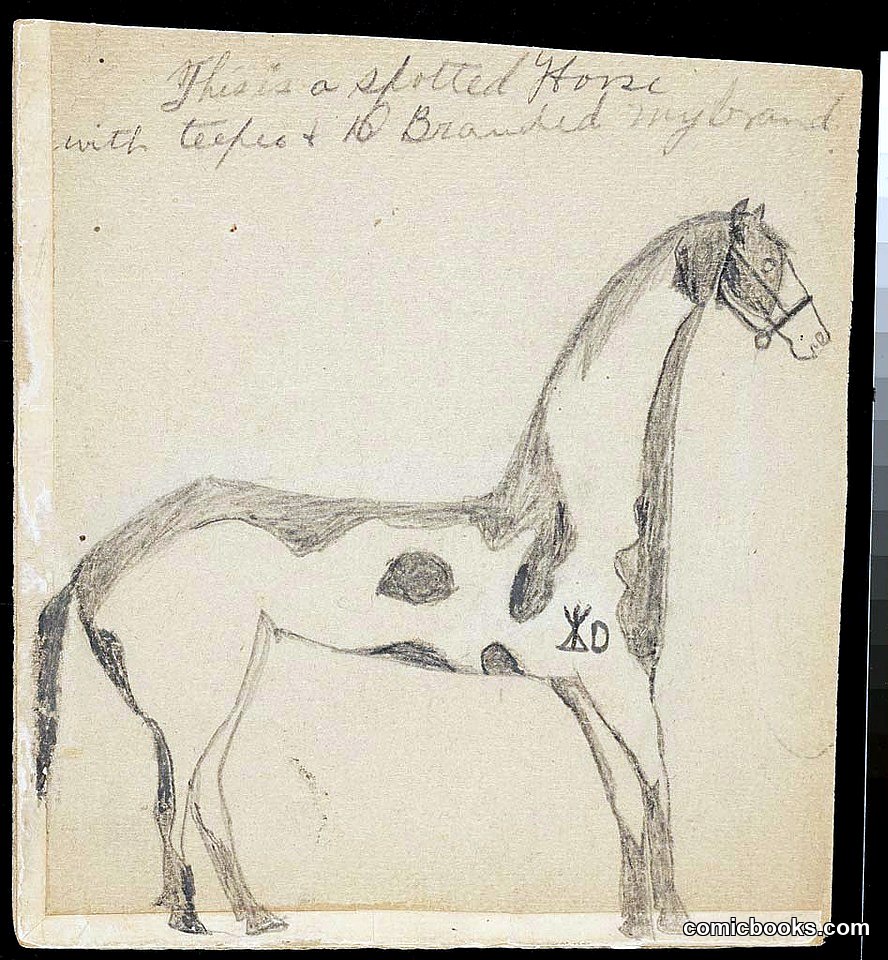 This is a spotted Horse
with teepee & D Branded my brand
D
comicbooks.com